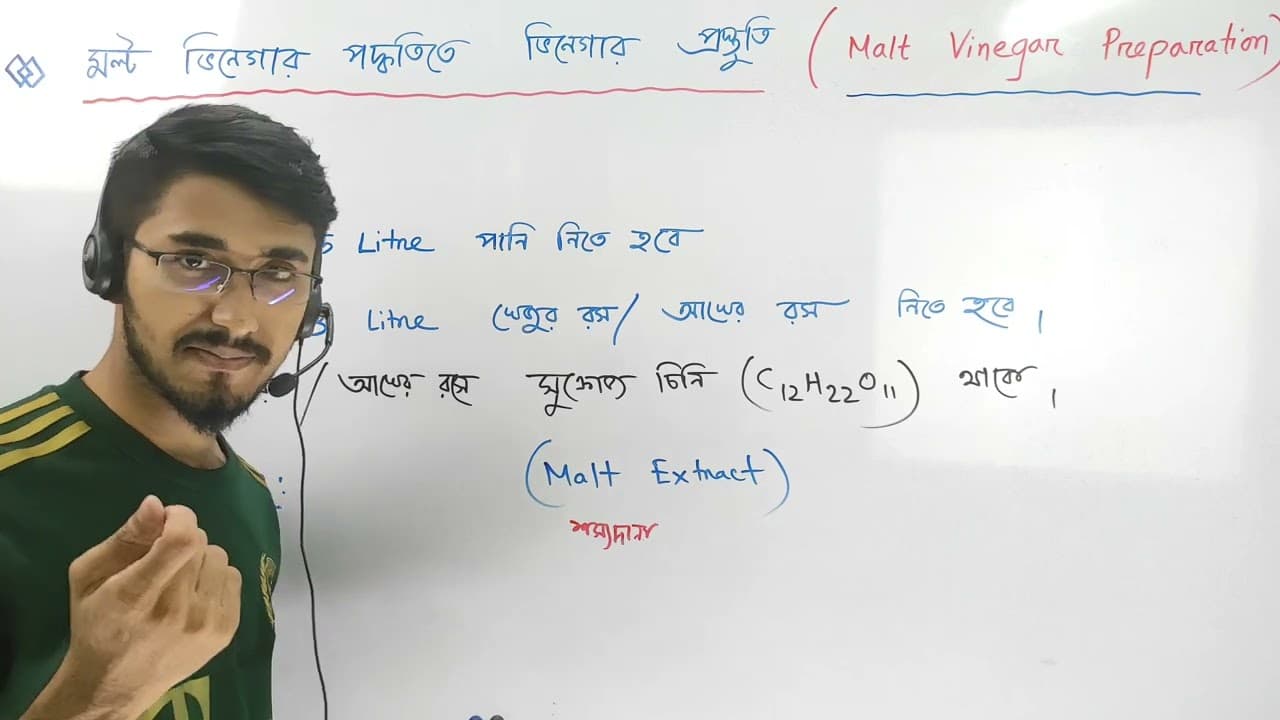 মল্ট ভিনেগার পদ্ধতিতে ভিনেগার প্রস্তুতি (Malt Vinegar Preparation)
Litre পানি নিতে হবে
Litre খেজুর রস/ আখের রস নিতে হবে।
/ আখের রসে সুক্রোজ চিনি (C₁₂H₂₂O₁₁) থাকে।
(Malt Extract)
শস্যদানা